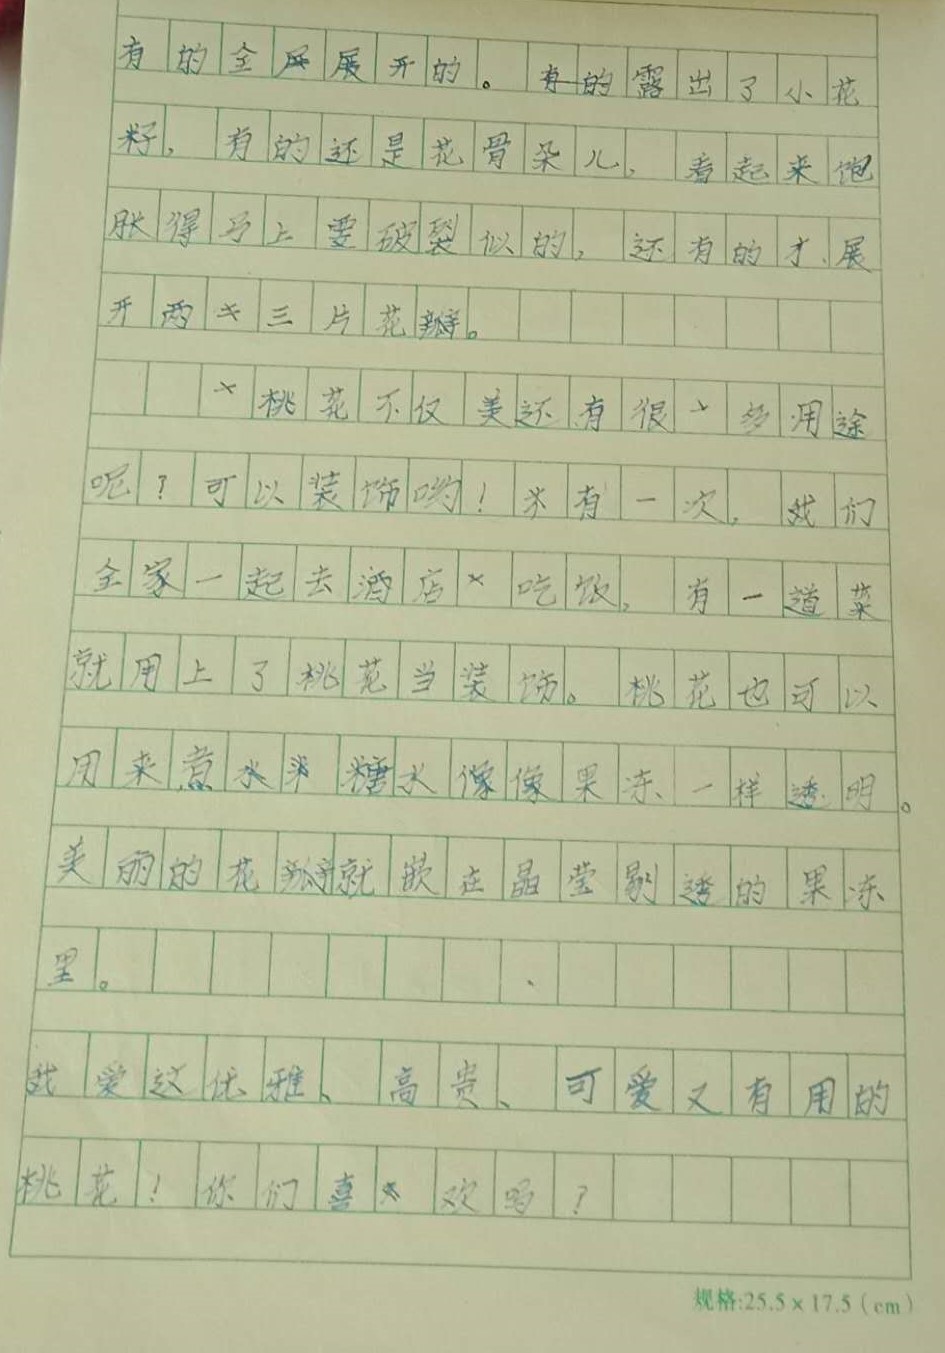 有的全展开的。有的露出了小花
籽，有的还是花骨朵儿，看起来饱
胀得马上要破裂似的，还有的才展
开两三片花瓣。
桃花不仅美还有很多用途
呢？可以装饰哟！有一次，我们
全家一起去酒店吃饭，有一道菜
就用上了桃花当装饰。桃花也可以
用来煮水糖水像像果冻一样透明。
美丽的花瓣就嵌在晶莹剔透的果冻
里。
我爱这优雅、高贵、可爱又有用的
桃花！你们喜欢吗？
规格:25.5×17.5(cm)